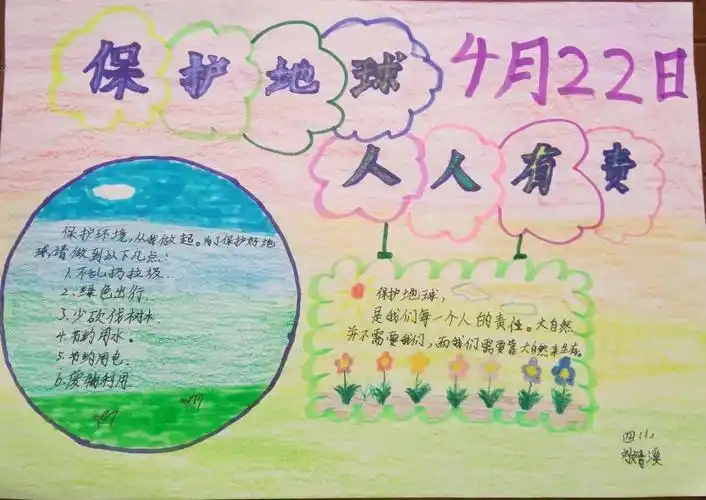 保护地球
4月22日
人人有责
保护环境,从我做起。为了保护好地
球,请做到以下几点:
1.不乱扔垃圾.
2.绿色出行.
3.少砍伐树木
4.节约用水。
5.节约用电.
6.废物利用.
保护地球,
是我们每一个人的责任。大自然
并不需要我们,而我们需要靠大自然来生存。
四(1)